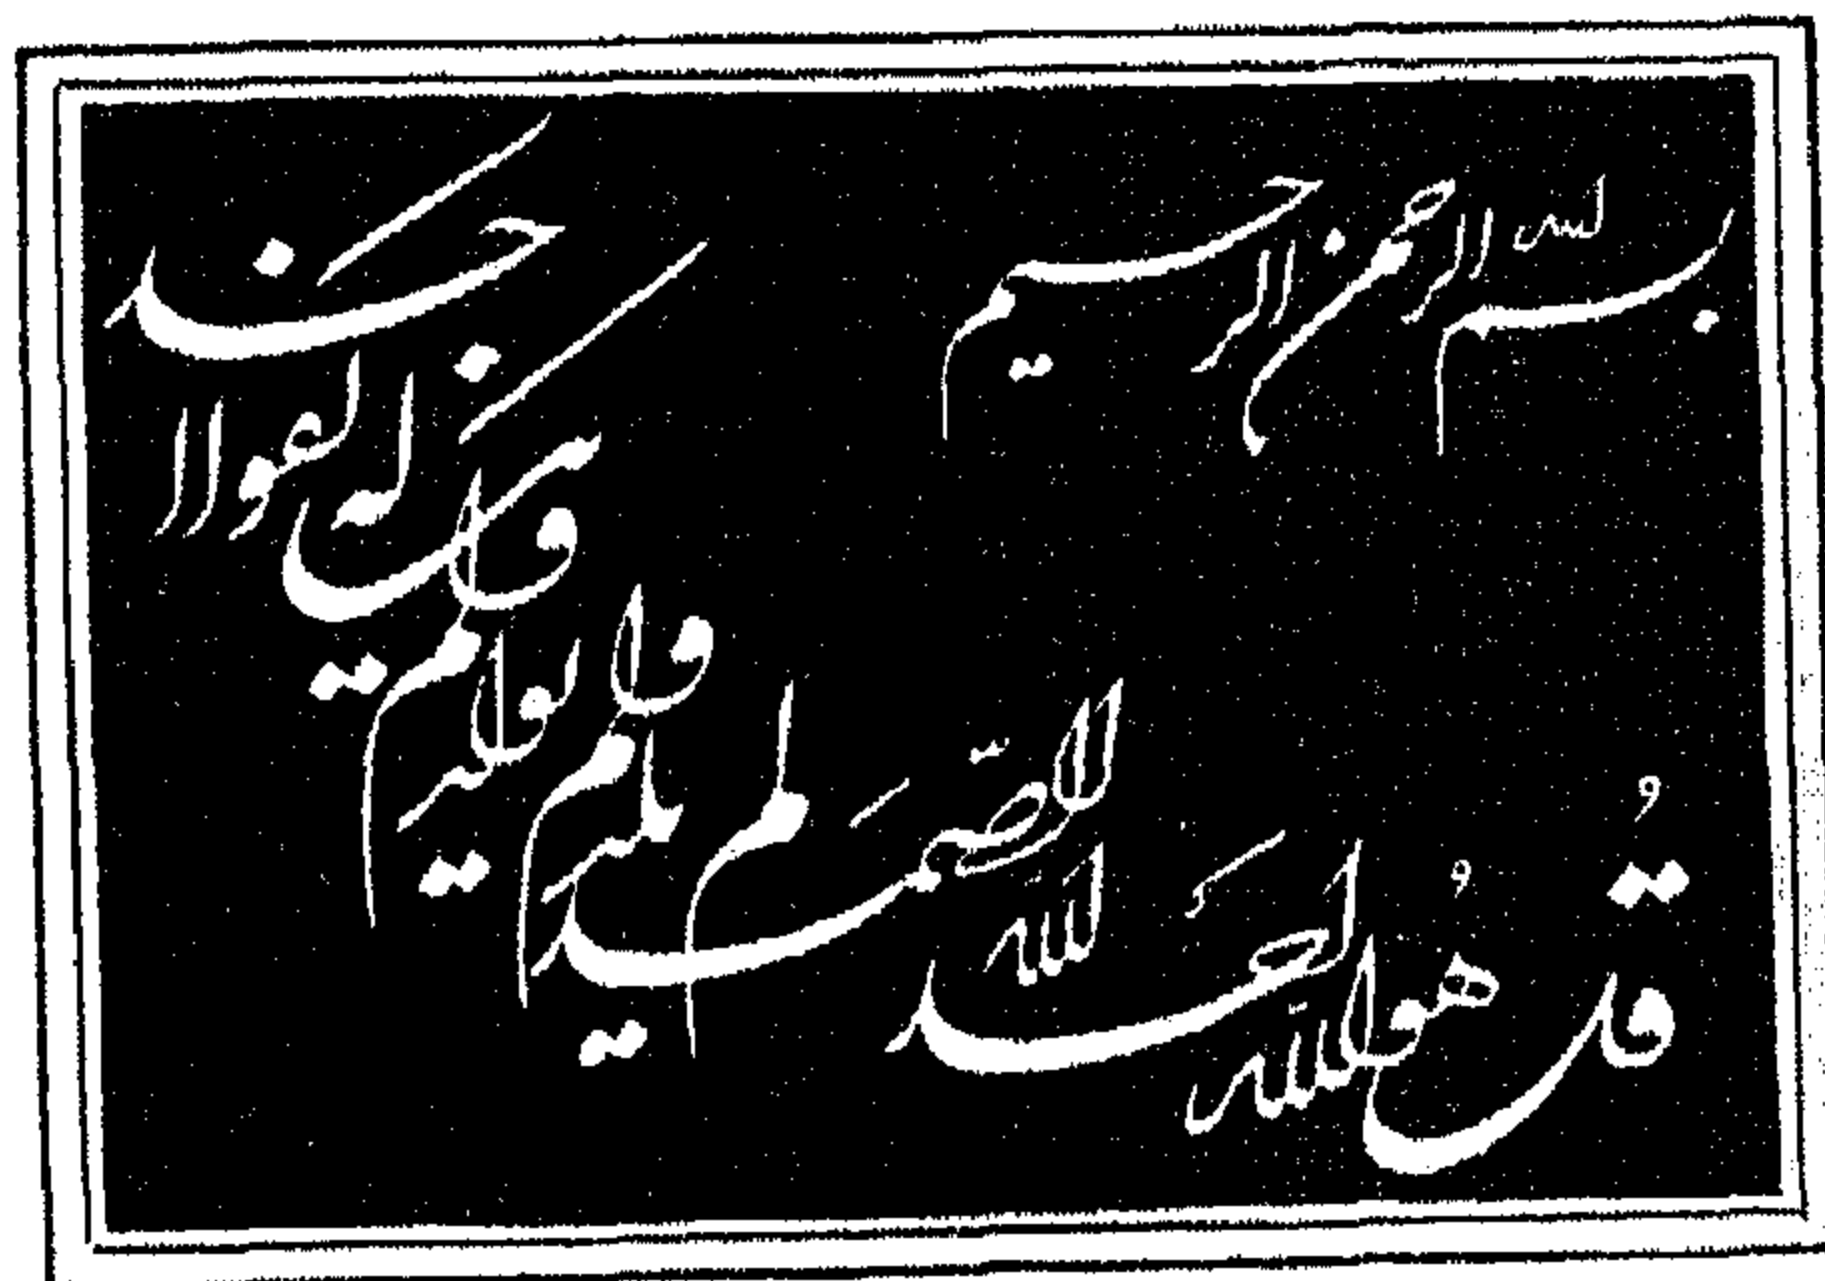 بسم الله الرحمن الرحيم
قُل هُو الله احَد
الله الصّمَد
لم يلد
ولم يولد
ولم يكن
له كفوا احد